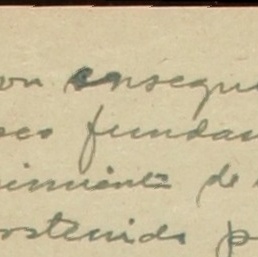 on consegui
seo fundam
cimiento de
ostenido p